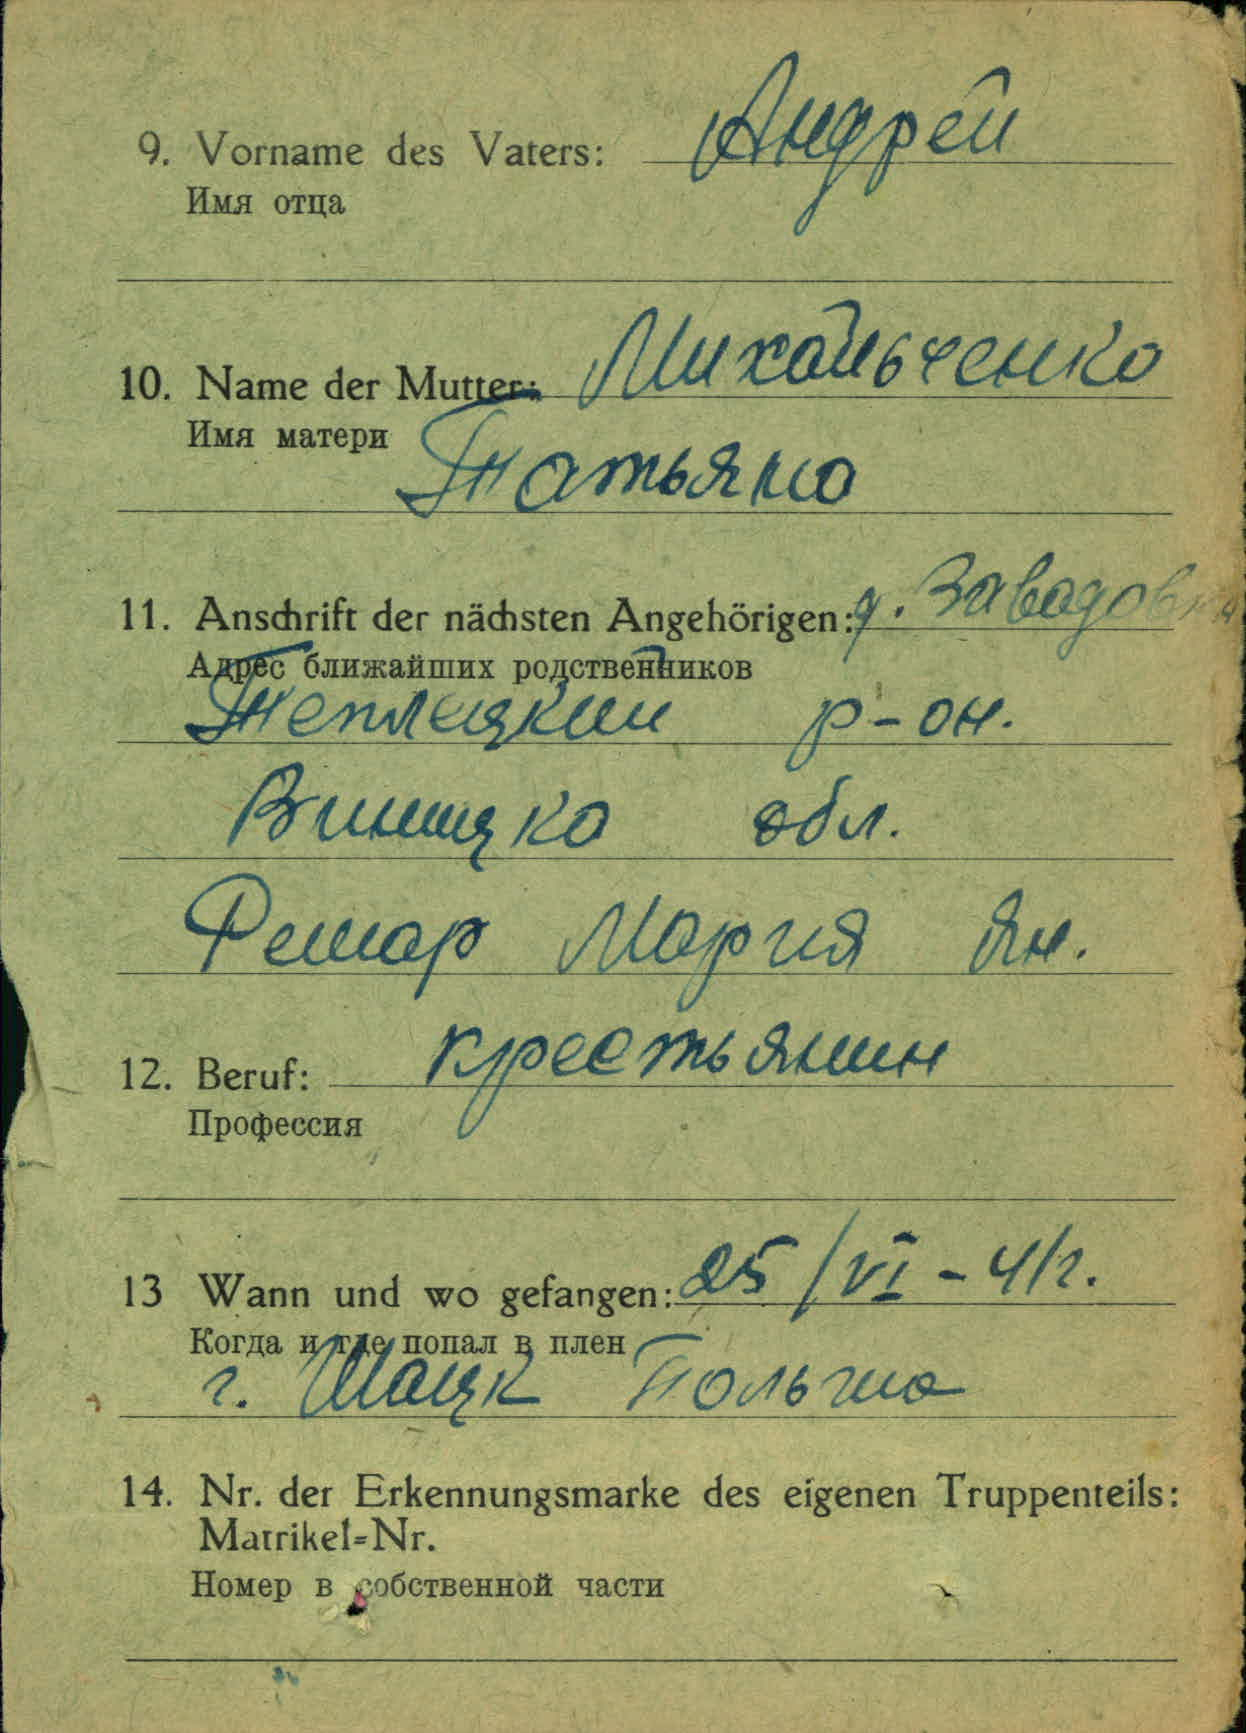 9. Vorname des Vaters: Андрей
Имя отца
10. Name der Mutter: Михальченко
Имя матери
Татьяна
11. Anschrift der nächsten Angehörigen: д. Завадовка
Адрес ближайших родственников
р-он.
Виницко обл.
Мария Ян.
12. Beruf: крестьянин
Профессия
13 Wann und wo gefangen: 25/VI-41г.
Когда и где попал в плен
г. Шацк Польша
14. Nr. der Erkennungsmarke des eigenen Truppenteils:
Matrikel=Nr.
Номер в собственной части